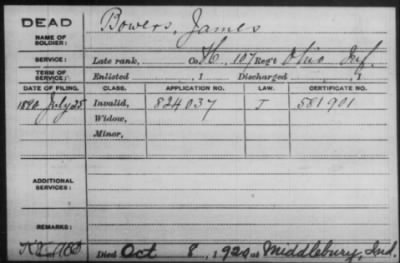 DEAD
Bowers, James
NAME OF
SOLDIER:
SERVICE:
Late rank, Co. H, 107 Reg't Ohio Inf.
TERM OF
SERVICE:
Enlisted , 1 Discharged , 1
DATE OF FILING. CLASS. APPLICATION NO. LAW. CERTIFICATE NO.
1890 July 25 Invalid, 824037 J 581901
Widow,
Minor,
ADDITIONAL
SERVICES:
REMARKS:
Died Oct 8, 1920 at Middlebury, Ind.